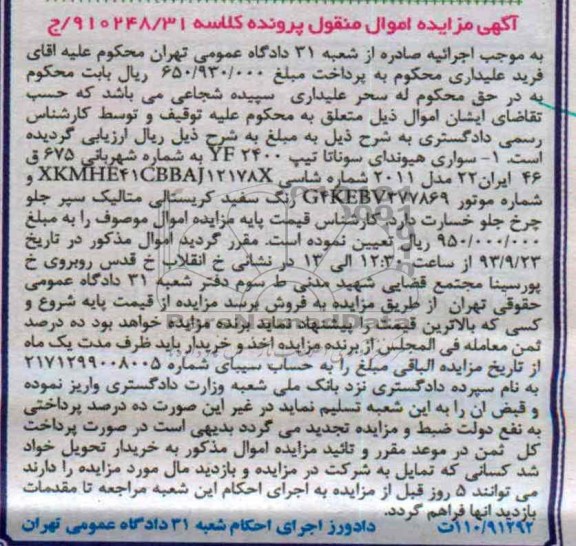 آگهی مزایده اموال منقول پرونده کلاسه ۹۱۰۲۴۸/۳۱/ج
به موجب اجرائیه صادره از شعبه ۳۱ دادگاه عمومی تهران محکوم علیه اقای
فرید علیداری محکوم به پرداخت مبلغ ۶۵۰/۹۳۰/۰۰۰ ریال بابت محکوم
به در حق محکوم له سحر علیداری سپیده شجاعی می باشد که حسب
تقاضای ایشان اموال ذیل متعلق به محکوم علیه توقیف و توسط کارشناس
رسمی دادگستری به شرح ذیل به مبلغ به شرح ذیل ریال ارزیابی گردیده
است. ۱- سواری هیوندای سوناتا تیپ YF ۲۴۰۰ به شماره شهربانی ۶۷۵ ق
۴۶ ایران۲۲ مدل ۲۰۱۱ شماره شاسی XKMHE۴۱CBBAJ۱۲۱۷۸X و
شماره موتور G۴KEBV۲۷۷۸۶۹ رنگ سفید کریستالی متالیک سپر جلو
چرخ جلو خسارت دارد کارشناس قیمت پایه مزایده اموال موصوف را به مبلغ
۹۵۰/۰۰۰/۰۰۰ ریال تعیین نموده است. مقرر گردید اموال مذکور در تاریخ
۹۳/۹/۲۳ از ساعت ۱۲:۳۰ الی ۱۳ در نشانی خ انقلاب خ قدس روبروی خ
پورسینا مجتمع قضایی شهید مدنی ط سوم دفتر شعبه ۳۱ دادگاه عمومی
حقوقی تهران از طریق مزایده به فروش برسد مزایده از قیمت پایه شروع و
کسی که بالاترین قیمت را پیشنهاد نماید برنده مزایده خواهد بود ده درصد
ثمن معامله فی المجلس از برنده مزایده اخذ و خریدار باید ظرف مدت یک ماه
از تاریخ مزایده الباقی مبلغ را به حساب سیبای شماره ۲۱۷۱۲۹۹۰۰۸۰۰۵
به نام سپرده دادگستری نزد بانک ملی شعبه وزارت دادگستری واریز نموده
و قبض ان را به این شعبه تسلیم نماید در غیر این صورت ده درصد پرداختی
به نفع دولت ضبط و مزایده تجدید می گردد بدیهی است در صورت پرداخت
کل ثمن در موعد مقرر و تائید مزایده اموال مذکور به خریدار تحویل خواد
شد کسانی که تمایل به شرکت در مزایده و بازدید مال مورد مزایده را دارند
می توانند ۵ روز قبل از مزایده به اجرای احکام این شعبه مراجعه تا مقدمات
بازدید انها فراهم گردد.
۱۱۰/۹۱۲۹۲ت دادورز اجرای احکام شعبه ۳۱ دادگاه عمومی تهران